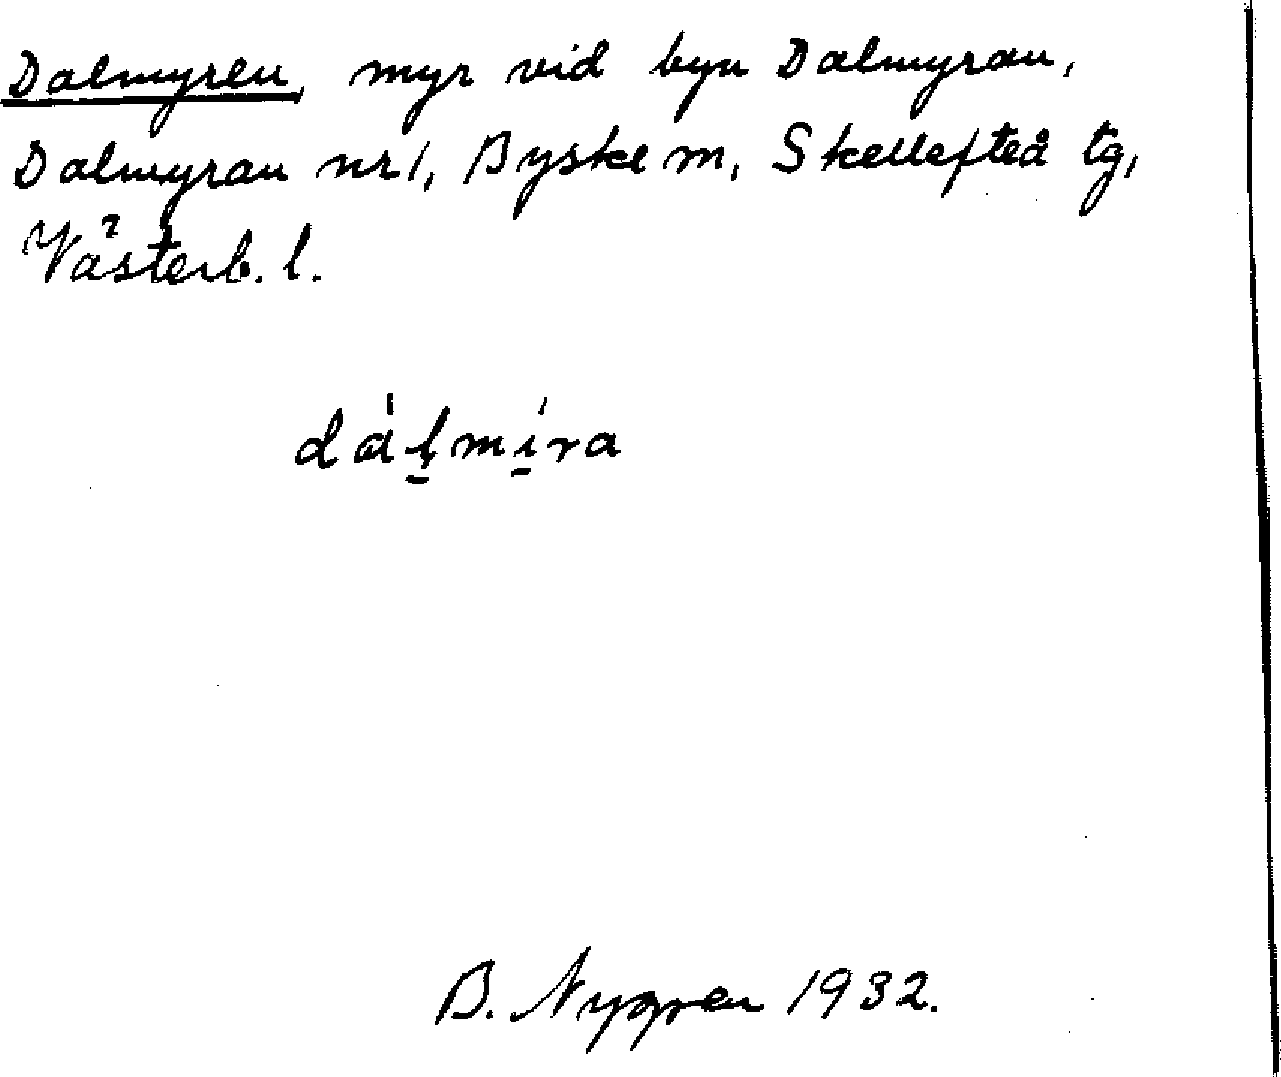 Dalmyren, myr vid byn Dalmyran,
Dalmyran nr 1, Byske sn, Skellefteå tg,
Västerb. l.
dálmíra
B. Nygren 1932.